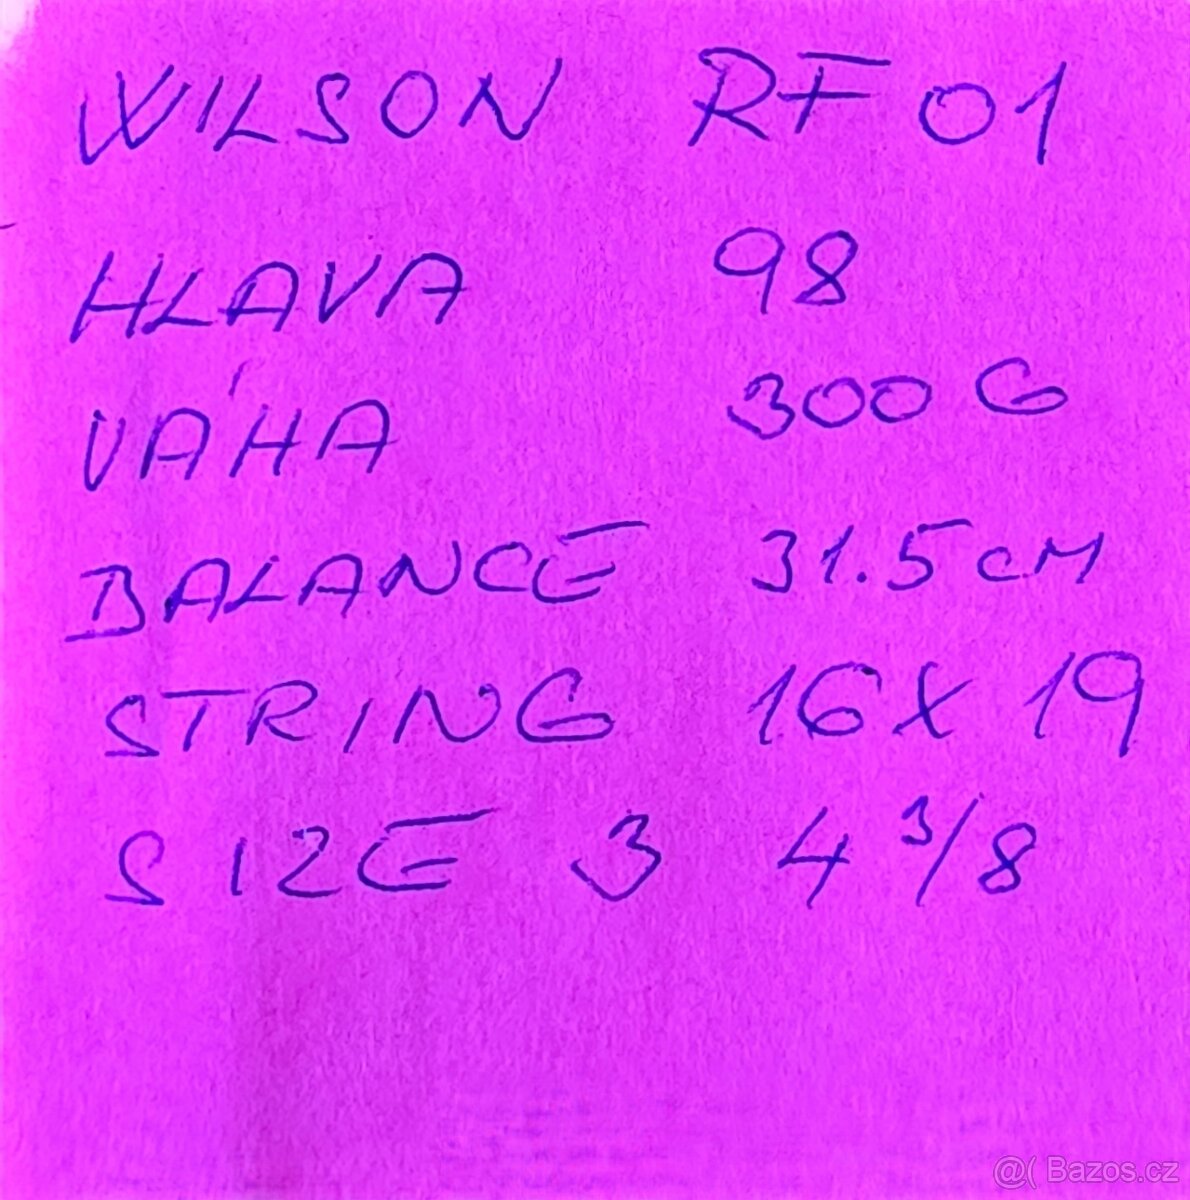 WILSON RF 01
HLAVA 98
VÁHA 300 G
BALANCE 31.5 CM
STRING 16 X 19
SIZE 3 4 3/8
@( Bazos.cz